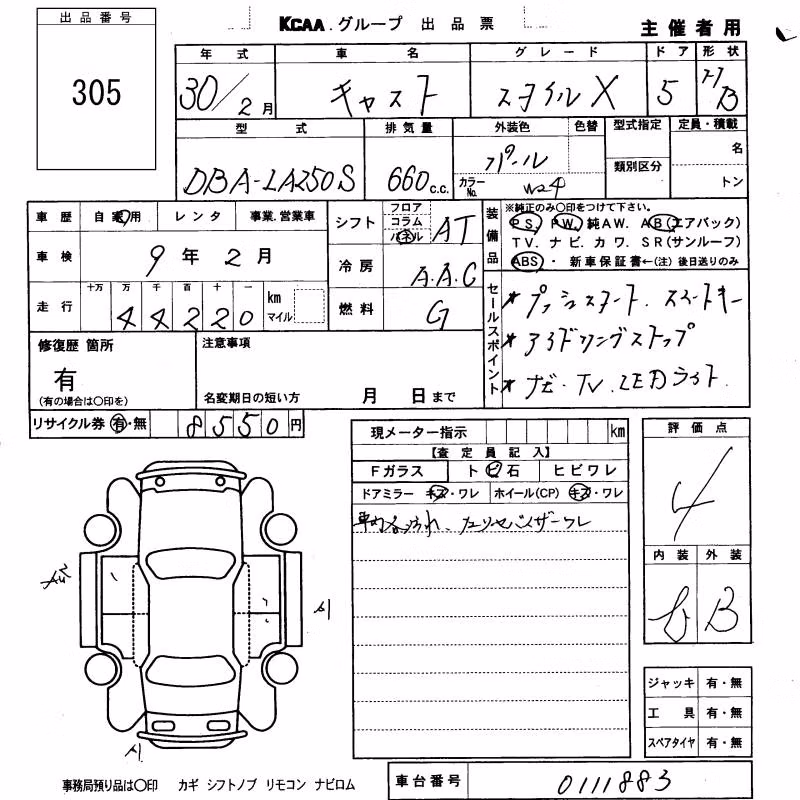 出品番号
305
KCAA.グループ 出品票
主催者用
年式 車名 グレード ドア 形状
30/2月 キャスト スタイルX 5 B
型式 排気量 外装色 色替 型式指定 定員・積載
DBA-LA250S 660c.c. パール 名
カラーNo. W24 類別区分 トン
車歴 自家用 レンタ 事業.営業車
車検 9年2月
走行 十万 万 千 百 十 一
44220 km マイル
シフト フロア コラム パネル AT
冷房 A.A.C
燃料 G
装備品 ※純正のみ〇印をつけて下さい。
PS. PW. 純AW. AB(エアバック)
TV. ナビ. カワ. SR(サンルーフ)
ABS・ 新車保証書←(注)後日送りのみ
セールスポイント
*プッシュスタート. スマートキー
*アイドリングストップ
*ナビ・TV. LEDライト.
修復歴 箇所
有
(有の場合は〇印を)
注意事項
名変期日の短い方 月 日まで
リサイクル券 有・無 8550円
現メーター指示 km
【査定員記入】
Fガラス トビ石 ヒビワレ
ドアミラー キズ・ワレ ホイール(CP) キズ・ワレ
評価点
4
内装 外装
B
ジャッキ 有・無
工具 有・無
スペアタイヤ 有・無
事務局預り品は〇印 カギ シフトノブ リモコン ナビロム
車台番号 0111883